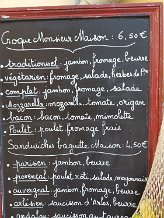 Croque Monsieur Maison : 6,50€
• traditionnel : jambon, fromage, beurre
• végétarien : fromage, salade, herbes de P
• complet : jambon, fromage, salade
• Mozzarella : mozza, tomate, origan
• bacon : bacon, tomate, mimolette
• Poulet : poulet, fromage frais
Sandwiches baguette Maison : 4,50€
• parisien : jambon, beurre
• provençal : poulet, salade, mayonnaise
• auvergnat : jambon, fromage, beurre
• artésien : saucisson d'Arles, beurre
• andalou :